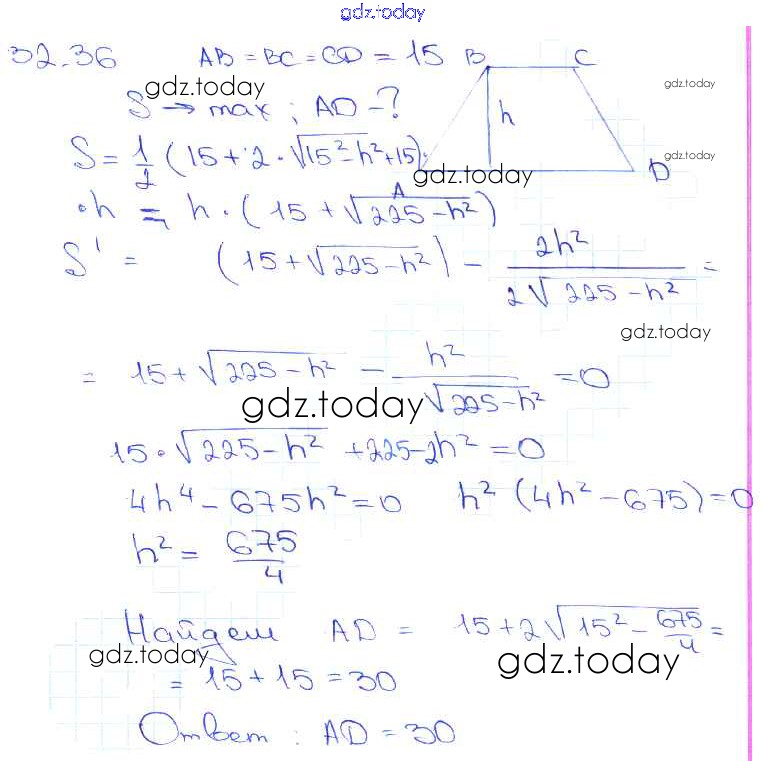 gdz.today
32.36 AB = BC = CD = 15 B C
gdz.today gdz.today
S → max ; AD - ? h
S = 1/2 (15 + 2 · √(15² - h²) + 15) · gdz.today
A gdz.today D
· h = h · (15 + √(225 - h²))
S' = (15 + √(225 - h²)) - 2h²/(2√(225 - h²)) =
gdz.today
= 15 + √(225 - h²) - h²/√(225 - h²) = 0
gdz.today
15 · √(225 - h²) + 225 - 2h² = 0
4h⁴ - 675h² = 0 h² (4h² - 675) = 0
h² = 675/4
Найдем AD = 15 + 2√(15² - 675/4) =
gdz.today gdz.today
= 15 + 15 = 30
Ответ : AD = 30